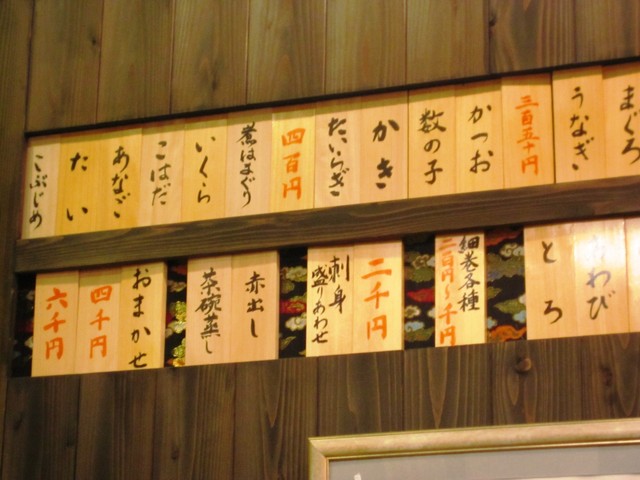 まぐろ
うなぎ
三百五十円
かつお
数の子
かき
たいらぎ
四百円
煮はまぐり
いくら
こはだ
あなご
たい
こぶじめ
わび
とろ
細巻各種
二百円〜千円
二千円
刺身
盛りあわせ
赤出し
茶碗蒸し
おまかせ
四千円
六千円